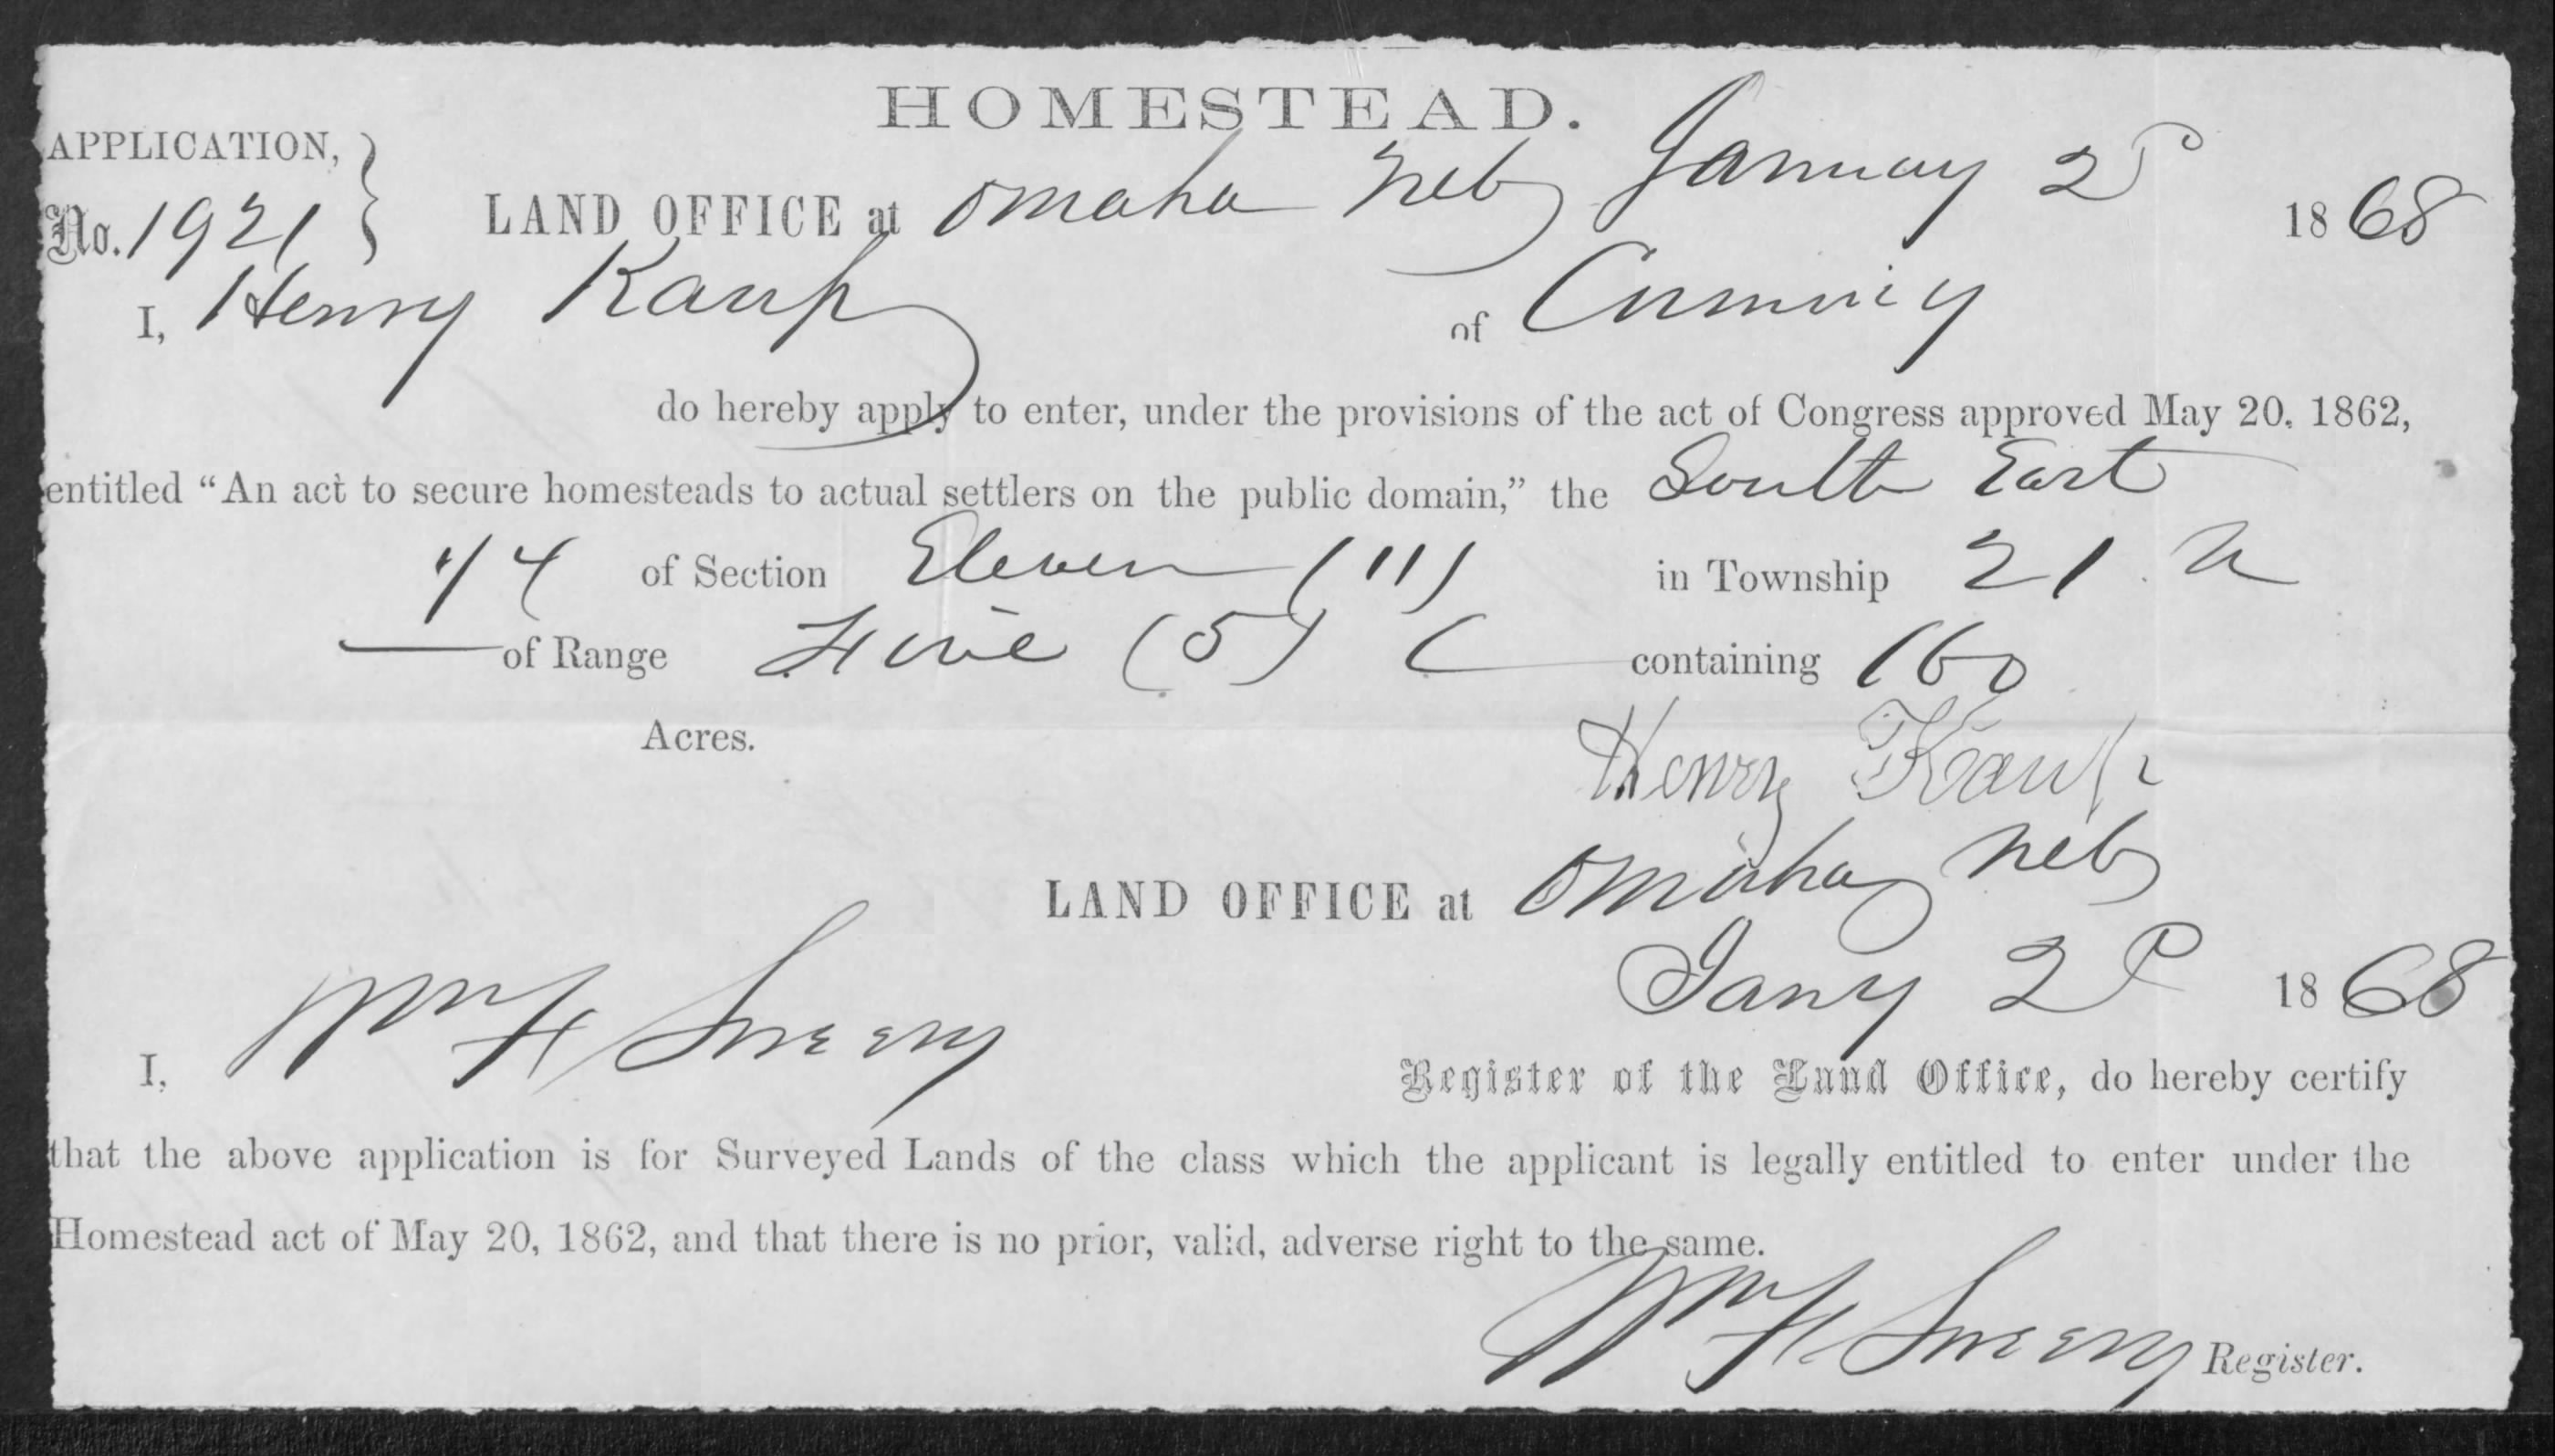 HOMESTEAD.
APPLICATION,
No. 1921
LAND OFFICE at Omaha Neb January 2d 1868
I, Henry Kaup of Cuming
do hereby apply to enter, under the provisions of the act of Congress approved May 20, 1862,
entitled “An act to secure homesteads to actual settlers on the public domain,” the South East
1/4 of Section Eleven (11) in Township 21 N
of Range Five (5) E containing 160
Acres.
Henry Kaup
LAND OFFICE at Omaha Neb
Jany 2d 1868
I, Wm H Sweeny Register of the Land Office, do hereby certify
that the above application is for Surveyed Lands of the class which the applicant is legally entitled to enter under the
Homestead act of May 20, 1862, and that there is no prior, valid, adverse right to the same.
Wm H Sweeny Register.